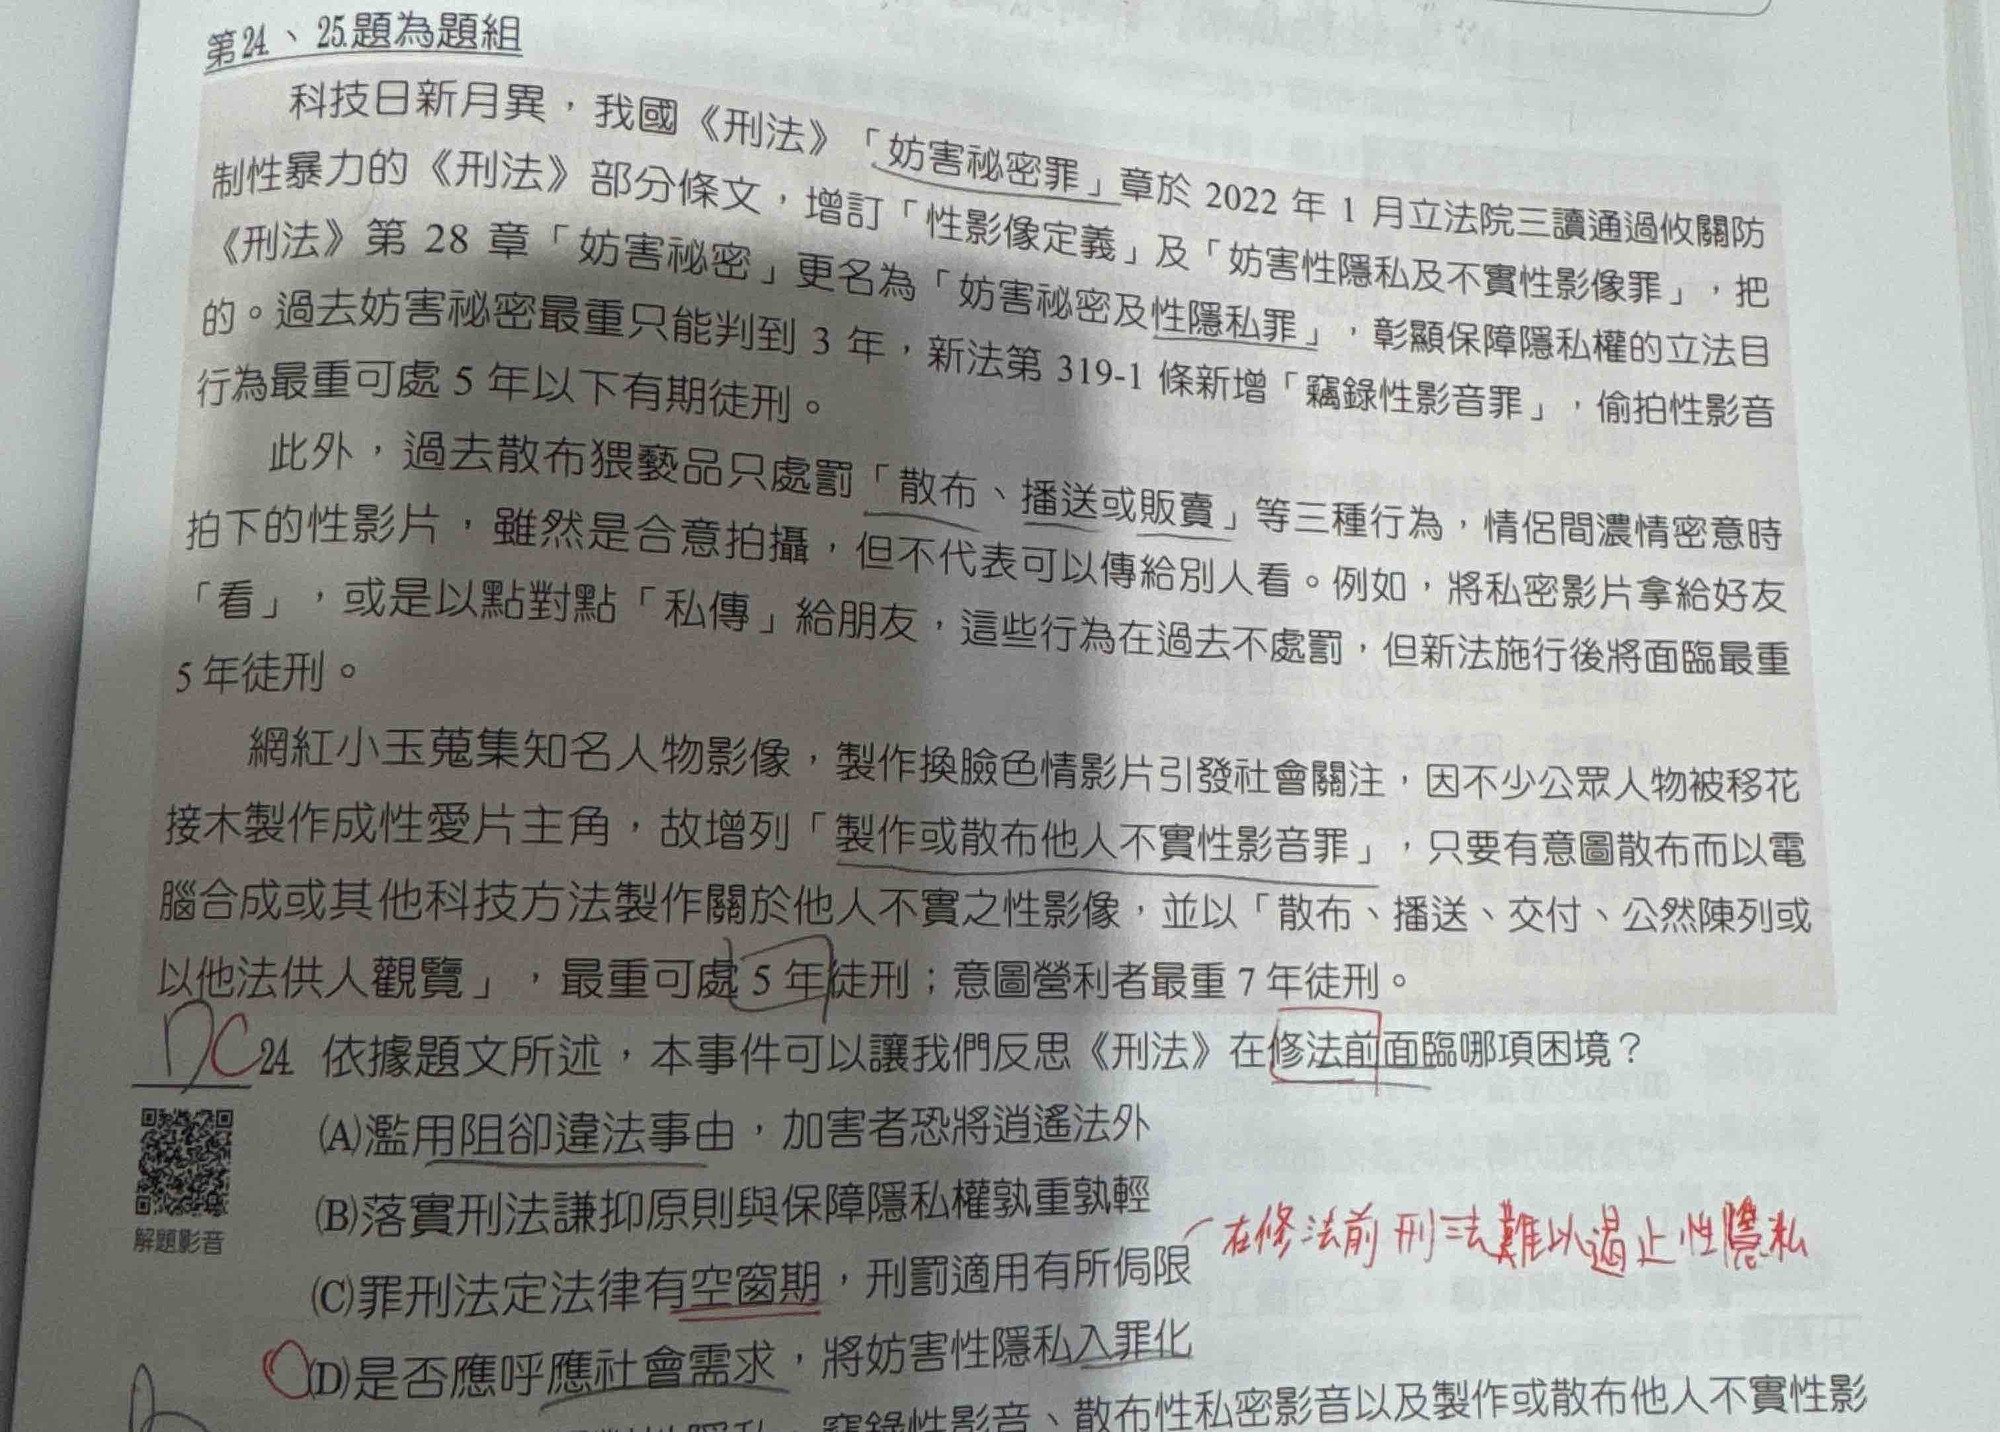 第24、25.題為題組
科技日新月異，我國《刑法》「妨害祕密罪」章於 2022 年 1 月立法院三讀通過攸關防
制性暴力的《刑法》部分條文，增訂「性影像定義」及「妨害性隱私及不實性影像罪」，把
《刑法》第 28 章「妨害祕密」更名為「妨害祕密及性隱私罪」，彰顯保障隱私權的立法目
的。過去妨害祕密最重只能判到 3 年，新法第 319-1 條新增「竊錄性影音罪」，偷拍性影音
行為最重可處 5 年以下有期徒刑。
此外，過去散布猥褻品只處罰「散布、播送或販賣」等三種行為，情侶間濃情密意時
拍下的性影片，雖然是合意拍攝，但不代表可以傳給別人看。例如，將私密影片拿給好友
「看」，或是以點對點「私傳」給朋友，這些行為在過去不處罰，但新法施行後將面臨最重
5 年徒刑。
網紅小玉蒐集知名人物影像，製作換臉色情影片引發社會關注，因不少公眾人物被移花
接木製作成性愛片主角，故增列「製作或散布他人不實性影音罪」，只要有意圖散布而以電
腦合成或其他科技方法製作關於他人不實之性影像，並以「散布、播送、交付、公然陳列或
以他法供人觀覽」，最重可處 5 年徒刑；意圖營利者最重 7 年徒刑。
DC 24. 依據題文所述，本事件可以讓我們反思《刑法》在修法前面臨哪項困境？
(A)濫用阻卻違法事由，加害者恐將逍遙法外
(B)落實刑法謙抑原則與保障隱私權孰重孰輕
(C)罪刑法定法律有空窗期，刑罰適用有所侷限
在修法前刑法難以遏止性隱私
(D)是否應呼應社會需求，將妨害性隱私入罪化
解題影音
竊錄性影音、散布性私密影音以及製作或散布他人不實性影